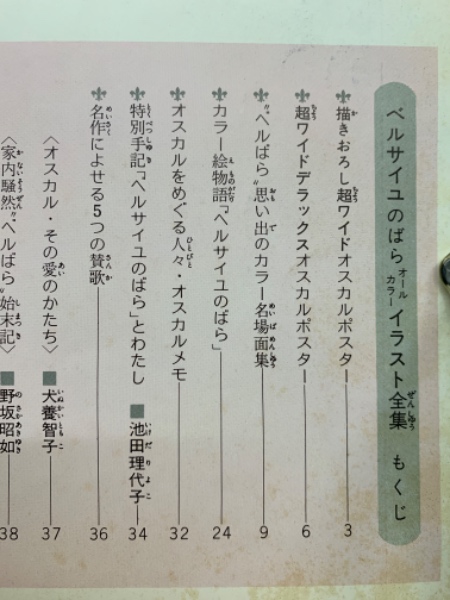 ベルサイユのばら オールカラー イラスト全集 もくじ
描きおろし超ワイドオスカルポスター 3
超ワイドデラックスオスカルポスター 6
"ベルばら"思い出のカラー名場面集 9
カラー絵物語「ベルサイユのばら」 24
オスカルをめぐる人々・オスカルメモ 32
特別手記「ベルサイユのばら」とわたし ■池田理代子 34
名作によせる5つの賛歌 36
〈オスカル・その愛のかたち〉 ■犬養智子 37
〈家内騒然"ベルばら"始末記〉 ■野坂昭如 38